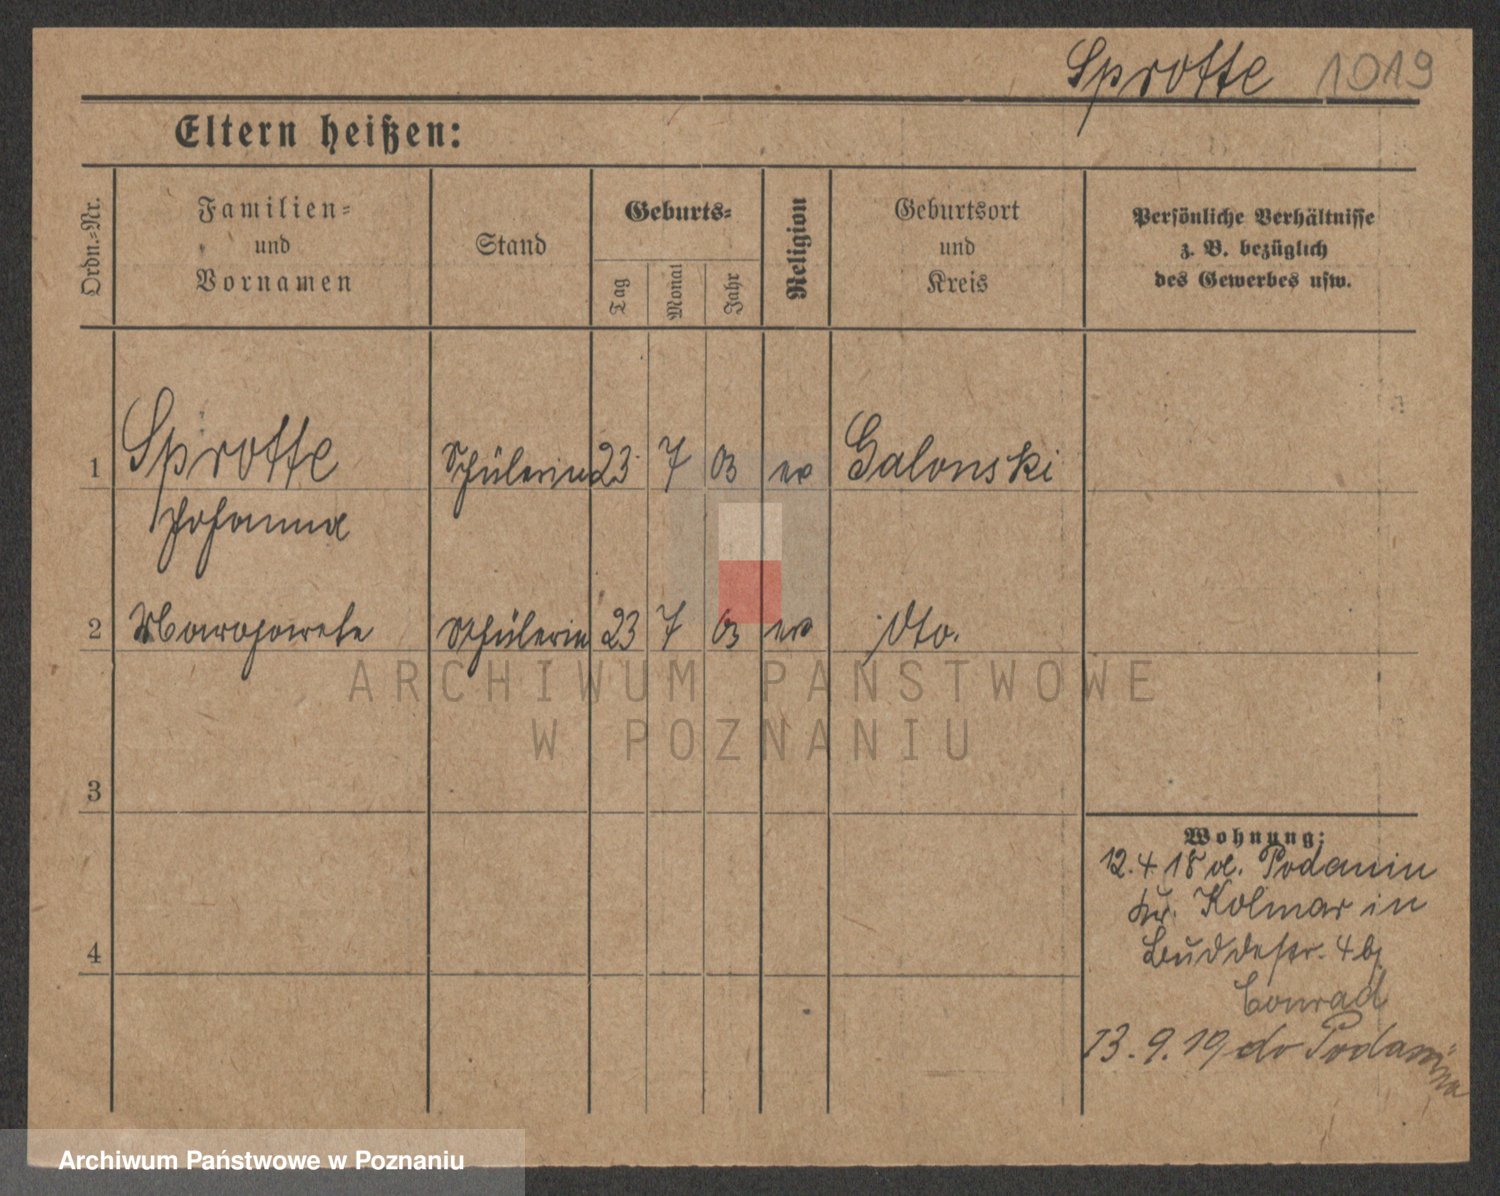 Sprotte 1019
Eltern heißen:
Ordn.-Nr.
Familien-
und
Vornamen
Stand
Geburts-
Tag
Monat
Jahr
Religion
Geburtsort
und
Kreis
Persönliche Verhältnisse
z. B. bezüglich
des Gewerbes usw.
1 Sprotte Schülerin 23 7 03 ev Galonski
Johanna
2 Margarete Schülerin 23 7 03 ev dto.
ARCHIWUM PAŃSTWOWE
W POZNANIU
3
Wohnung:
12.4 18 v. Podanin
Kr. Kolmar in
Buddestr. 4b
4
Conrad
13.9.19 do Podanina
Archiwum Państwowe w Poznaniu